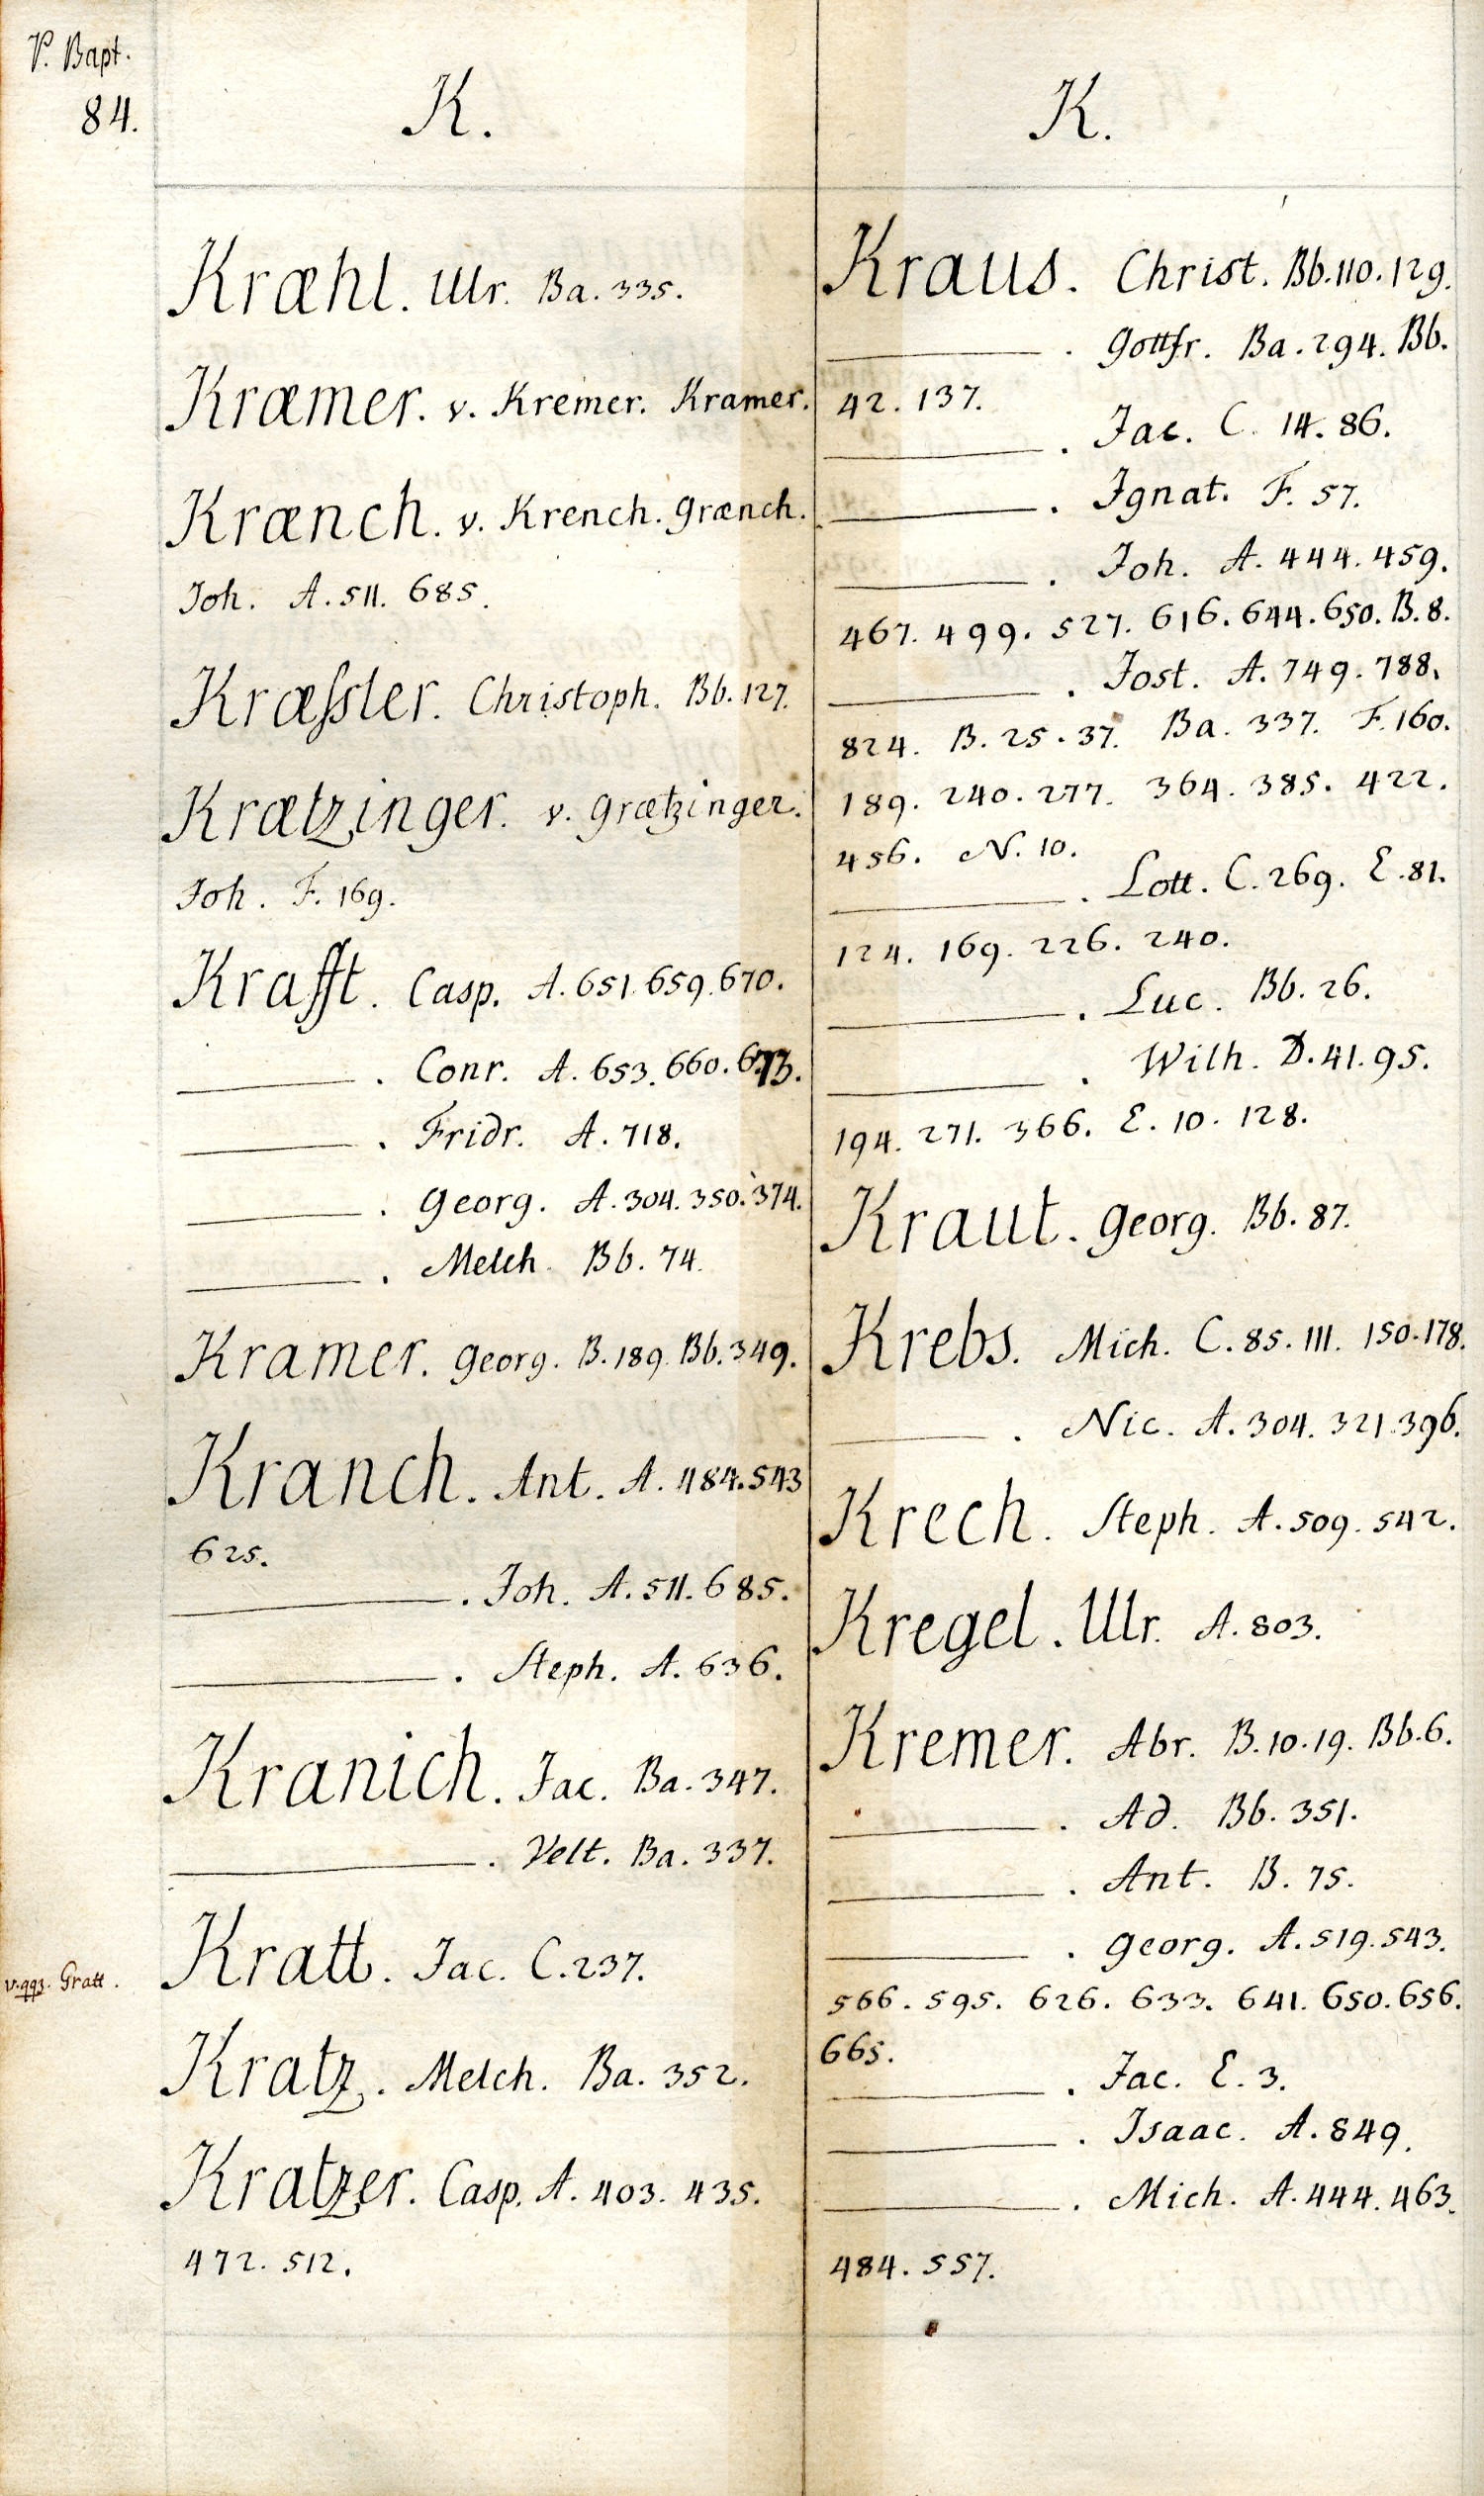 P. Bapt.
84.
K.
Kræhl. Ulr. Ba. 335.
Kræmer. v. Kremer. Kramer.
Krænch. v. Krench. Grænch.
Joh. A. 511. 685.
Kræſsler. Christoph. Bb. 127.
Krætzinger. v. Grætzinger.
Joh. F. 169.
Krafft. Casp. A. 651. 659. 670.
———. Conr. A. 653. 660. 673.
———. Fridr. A. 718.
———. Georg. A. 304. 350. 374.
———. Melch. Bb. 74.
Kramer. Georg. B. 189. Bb. 349.
Kranch. Ant. A. 484. 543
625.
———. Joh. A. 511. 685.
———. Steph. A. 636.
Kranich. Jac. Ba. 347.
———. Velt. Ba. 337.
v. Gratt.
Kratt. Jac. C. 237.
Kratz. Melch. Ba. 352.
Kratzer. Casp. A. 403. 435.
472. 512.
K.
Kraus. Christ. Bb. 110. 129.
———. Gottfr. Ba. 294. Bb.
42. 137.
———. Jac. C. 14. 86.
———. Ignat. F. 57.
———. Joh. A. 444. 459.
467. 499. 527. 616. 644. 650. B. 8.
———. Jost. A. 749. 788.
824. B. 25. 37. Ba. 337. F. 160.
189. 240. 277. 364. 385. 422.
456. N. 10.
———. Lott. C. 269. E. 81.
124. 169. 226. 240.
———. Luc. Bb. 26.
———. Wilh. D. 41. 95.
194. 271. 366. E. 10. 128.
Kraut. Georg. Bb. 87.
Krebs. Mich. C. 85. 111. 150. 178.
———. Nic. A. 304. 321. 396.
Krech. Steph. A. 509. 542.
Kregel. Ulr. A. 803.
Kremer. Abr. B. 10. 19. Bb. 6.
———. Ad. Bb. 351.
———. Ant. B. 75.
———. Georg. A. 519. 543.
566. 595. 626. 633. 641. 650. 656.
665.
———. Jac. E. 3.
———. Isaac. A. 849.
———. Mich. A. 444. 463.
484. 557.